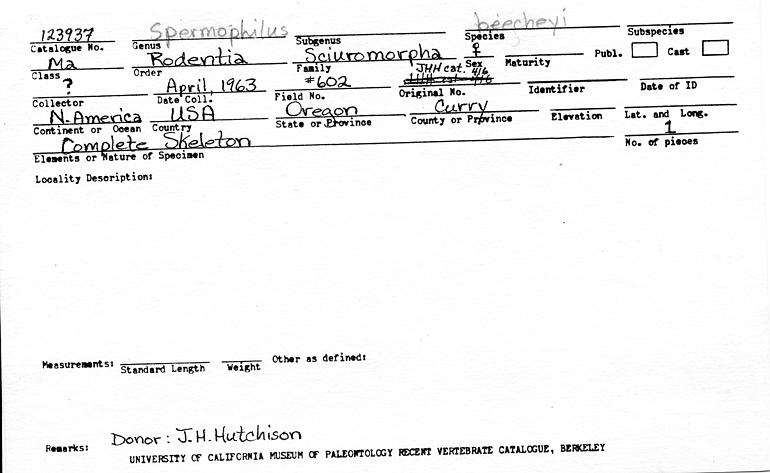 123937 Spermophilus beecheyi
Catalogue No. Genus Subgenus Species Subspecies
Ma Rodentia Sciuromorpha ♀ Publ. Cast
Class Order Family Sex Maturity
? April, 1963 #602 JHH cat. 416
Collector Date Coll. Field No. Original No. Identifier Date of ID
N. America USA Oregon Curry
Continent or Ocean Country State or Province County or Province Elevation Lat. and Long.
Complete Skeleton 1
Elements or Nature of Specimen No. of pieces
Locality Description:
Measurements: Standard Length Weight Other as defined:
Remarks: Donor: J.H. Hutchison
UNIVERSITY OF CALIFORNIA MUSEUM OF PALEONTOLOGY RECENT VERTEBRATE CATALOGUE, BERKELEY